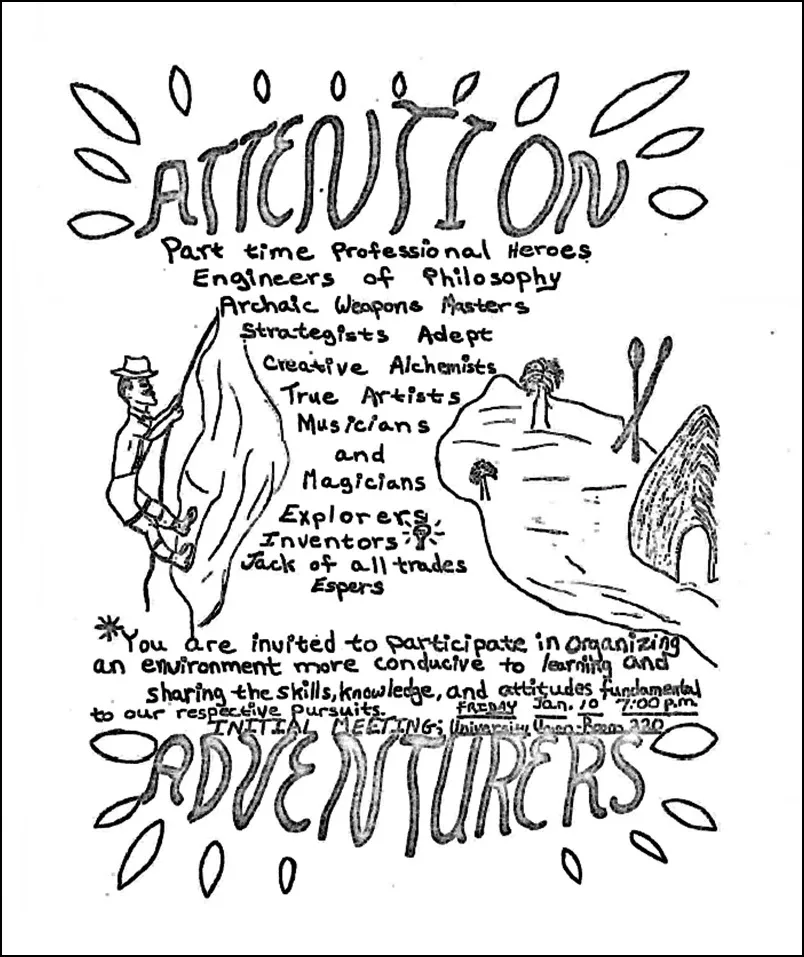 ATTENTION
Part time Professional Heroes
Engineers of Philosophy
Archaic Weapons Masters
Strategists Adept
Creative Alchemists
True Artists
Musicians
and
Magicians
Explorers
Inventors
Jack of all trades
Espers
*You are invited to participate in organizing
an environment more conducive to learning and
sharing the skills, knowledge, and attitudes fundamental
to our respective pursuits. FRIDAY Jan. 10 7:00 p.m.
INITIAL MEETING; University Union-Room 220
ADVENTURERS